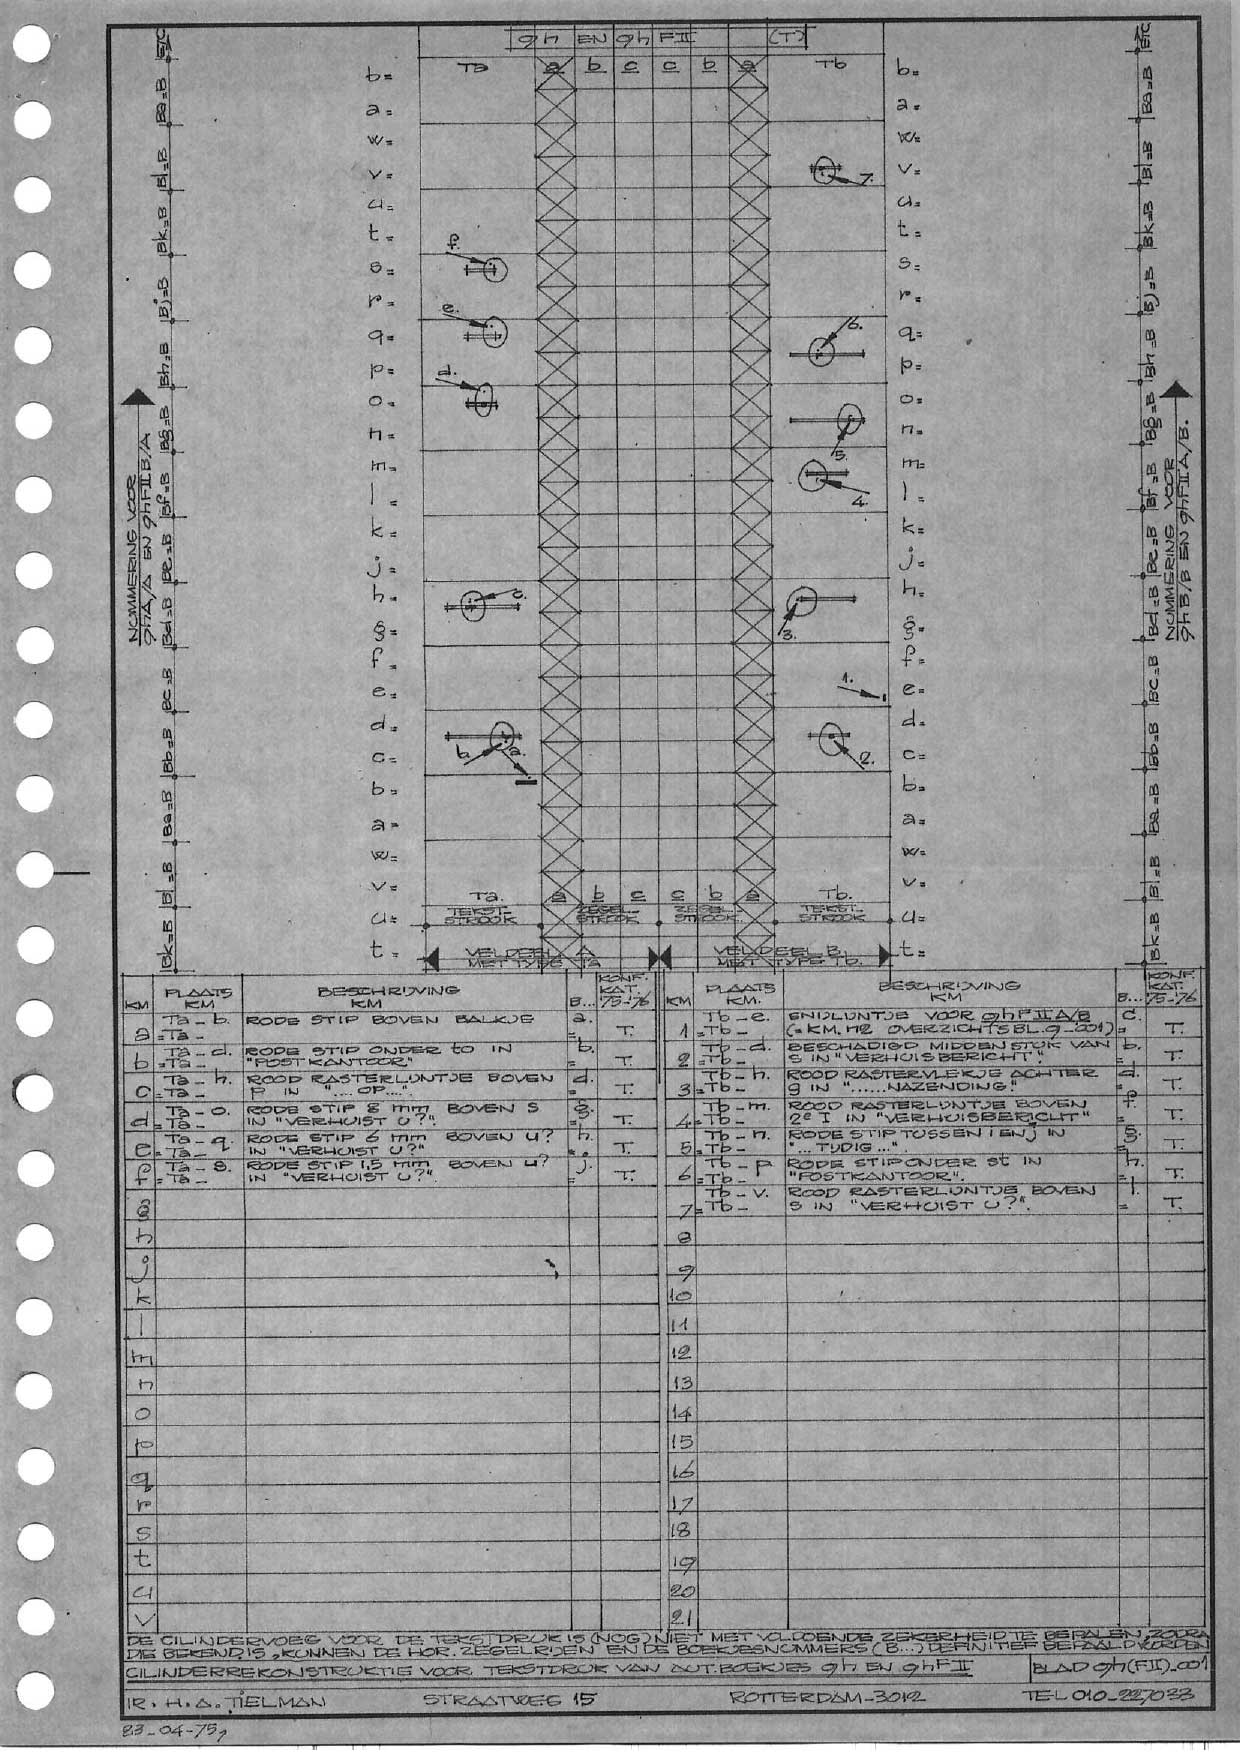 gh EN ghFII (T)
Ta a b c c b a Tb
b=
a=
w=
v=
u=
t=
s=
r=
q=
p=
o=
n=
m=
l=
k=
j=
h=
g=
f=
e=
d=
c=
b=
a=
w=
v=
u=
t=
b=
a=
w=
v=
u=
t=
s=
r=
q=
p=
o=
n=
m=
l=
k=
j=
h=
g=
f=
e=
d=
c=
b=
a=
w=
v=
u=
t=
ETC
Ba=B
Bl=B
Bk=B
Bj=B
Bh=B
Bg=B
Bf=B
Be=B
Bd=B
Bc=B
Bb=B
Ba=B
Bl=B
Bk=B
NUMMERING VOOR
ghA/A EN ghFII B/A
ETC
Ba=B
Bl=B
Bk=B
Bj=B
Bh=B
Bg=B
Bf=B
Be=B
Bd=B
Bc=B
Bb=B
Ba=B
Bl=B
Bk=B
NUMMERING VOOR
ghB/B EN ghFII A/B.
f.
e.
d.
c.
b.
a.
7.
6.
5.
4.
3.
1.
2.
Ta. a b c c b a Tb.
TEKST- STROOK ZEGEL- STROOK ZEGEL- STROOK TEKST- STROOK
VELDDEEL A
MET TYPE Ta
VELDDEEL B.
MET TYPE Tb.
KM PLAATS KM BESCHRIJVING KM B... KONF. KAT. '75-'76
a =Ta-b. =Ta- RODE STIP BOVEN BALKJE a. = T.
b Ta-d. =Ta- RODE STIP ONDER to IN "POSTKANTOOR" b. = T.
c Ta-h. =Ta- ROOD RASTERLIJNTJE BOVEN P IN "....OP....". d. = T.
d Ta-o. =Ta- RODE STIP 8 mm BOVEN S IN "VERHUIST U?". g. = T.
e Ta-q. =Ta- RODE STIP 6 mm BOVEN U? IN "VERHUIST U?". h. = T.
f Ta-s. =Ta- RODE STIP 1,5 mm BOVEN U? IN "VERHUIST U?". j. = T.
g
h
j
k
l
m
n
o
p
q
r
s
t
u
v
KM PLAATS KM. BESCHRIJVING KM B... KONF. KAT. 75-'76
1 Tb-e. =Tb- SNIJLIJNTJE VOOR ghFII A/B (=KM. M2 OVERZICHTSBL. g-001) c. = T.
2 Tb-d. =Tb- BESCHADIGD MIDDENSTUK VAN S IN "VERHUISBERICHT". b. = T.
3 Tb-h. =Tb- ROOD RASTERVLEKJE ACHTER g IN "......NAZENDING." d. = T.
4 Tb-m. =Tb- ROOD RASTERLIJNTJE BOVEN 2e I IN "VERHUISBERICHT" f. = T.
5 Tb-n. =Tb- RODE STIP TUSSEN i EN j IN "...TIJDIG...". g. = T.
6 Tb-p =Tb- RODE STIP ONDER st IN "POSTKANTOOR". h. = T.
7 Tb-v. =Tb- ROOD RASTERLIJNTJE BOVEN S IN "VERHUIST U?". l. = T.
8
9
10
11
12
13
14
15
16
17
18
19
20
21
DE CILINDERVOEG VOOR DE TEKSTDRUK IS (NOG) NIET MET VOLDOENDE ZEKERHEID TE BEPALEN, ZODRA
DIE BEKEND IS, KUNNEN DE HOR. ZEGELRIJEN EN DE BOEKJESNUMMERS (B...) DEFINITIEF BEPAALD WORDEN
CILINDERREKONSTRUKTIE VOOR TEKSTDRUK VAN AUT. BOEKJES gh EN ghFII BLAD gh(FII)-001
IR. H.A. TIELMAN STRAATWEG 15 ROTTERDAM-3012 TEL 010-227033
23-04-75,